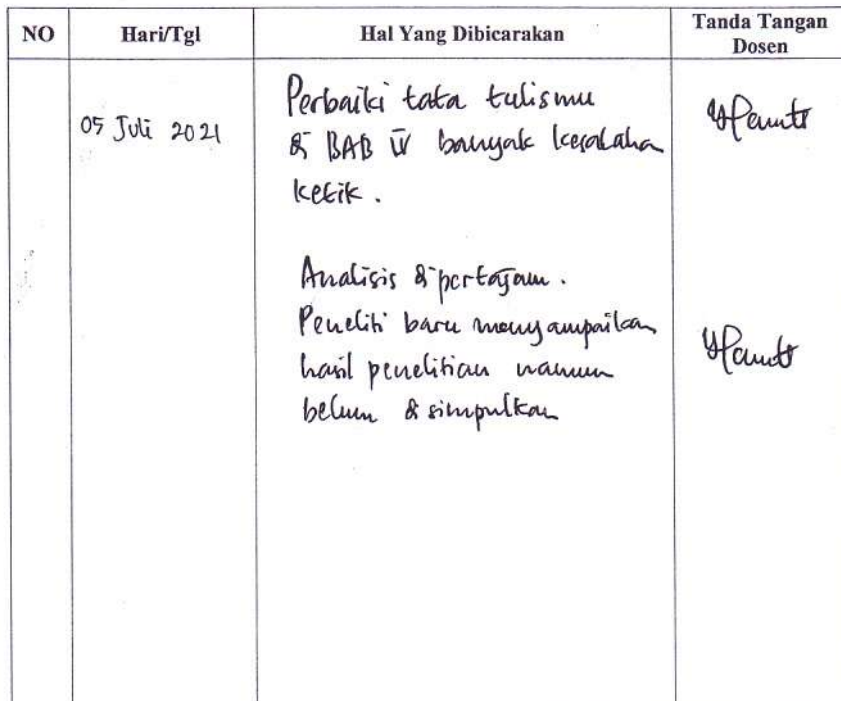 NO Hari/Tgl Hal Yang Dibicarakan Tanda Tangan
Dosen
05 Juli 2021
Perbaiki tata tulismu
di BAB IV banyak kesalahan
ketik.
Analisis dipertajam.
Peneliti baru menyampaikan
hasil penelitian namun
belum disimpulkan